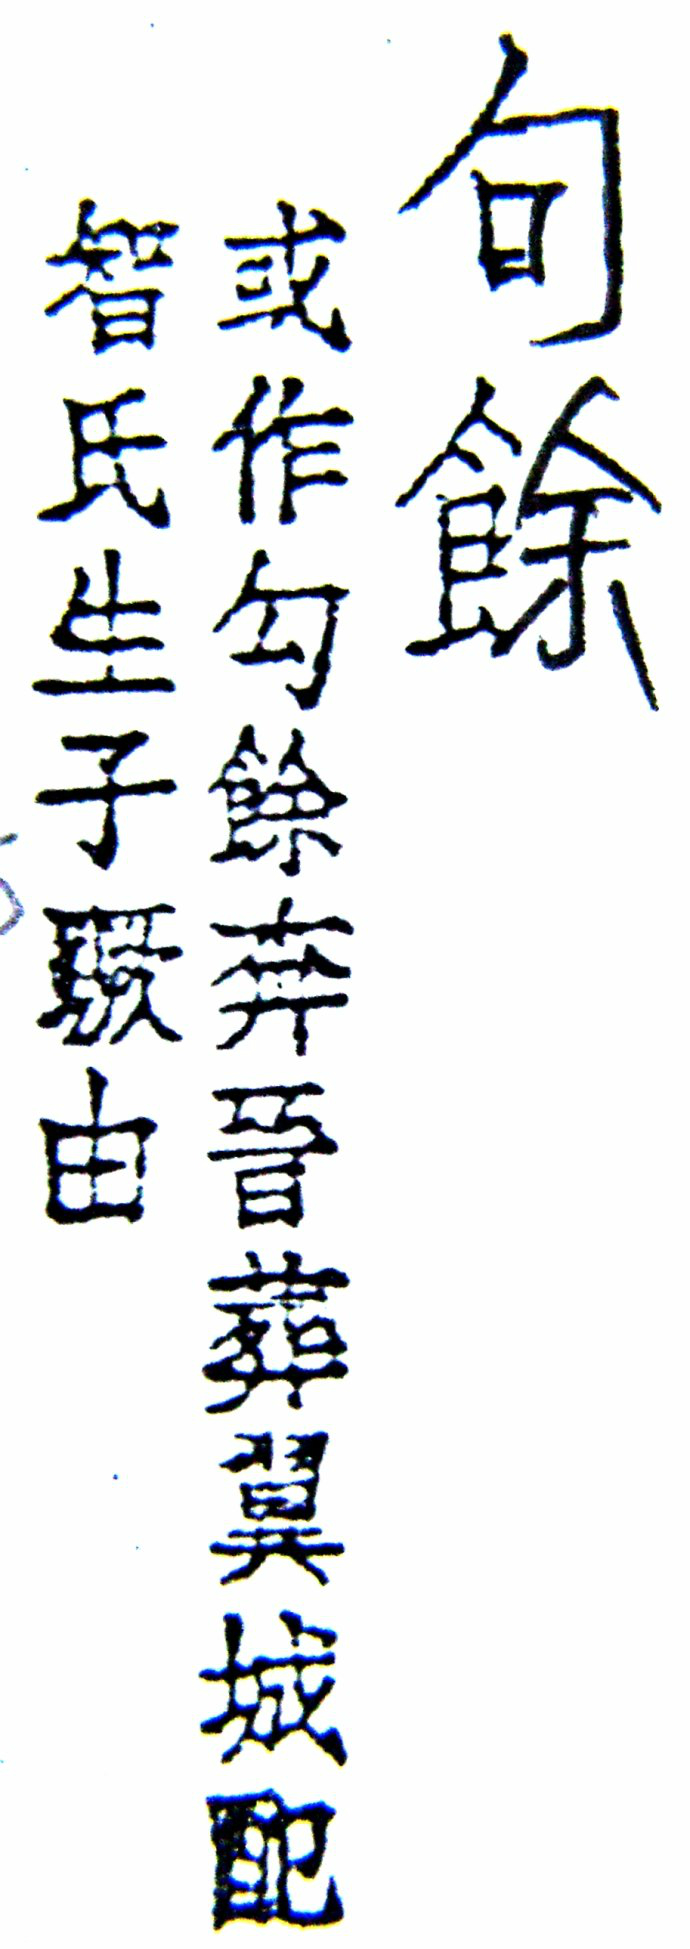 句餘
或作勾餘奔晉葬翼城配
智氏生子蹶由